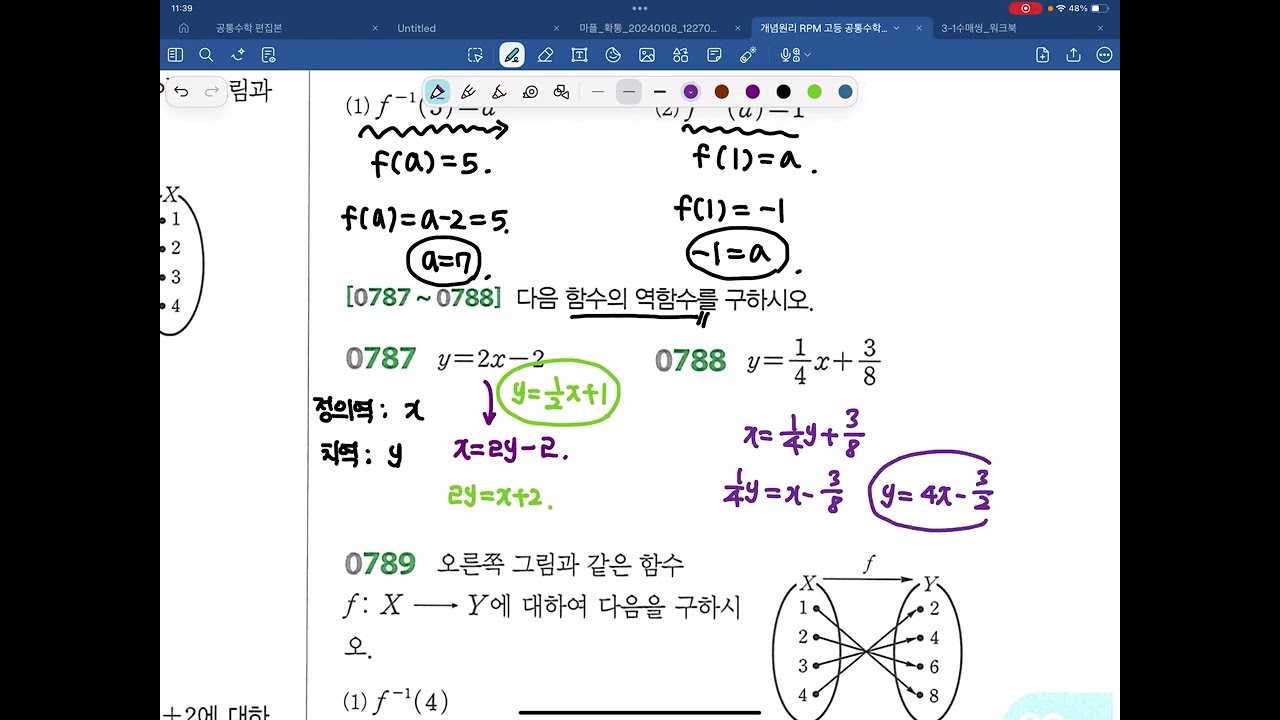 11:39
48%
공통수학 편집본
Untitled
마플_확통_20240108_12270...
개념원리 RPM 고등 공통수학...
3-1수매씽_워크북
림과
(1) f⁻¹(5)=a
(2) f⁻¹(a)=1
f(a)=5.
f(1)=a.
f(a)=a-2=5.
f(1)=-1
a=7.
-1=a.
X
1
2
3
4
[0787 ~ 0788] 다음 함수의 역함수를 구하시오.
0787 y=2x-2
y=½x+1
정의역: x
치역: y
x=2y-2.
2y=x+2.
0788 y=1/4x+3/8
x=1/4y+3/8
1/4y=x-3/8
y=4x-3/2
0789 오른쪽 그림과 같은 함수
f: X ⟶ Y에 대하여 다음을 구하시
오.
(1) f⁻¹(4)
f
X Y
1 2
2 4
3 6
4 8
+2에 대하